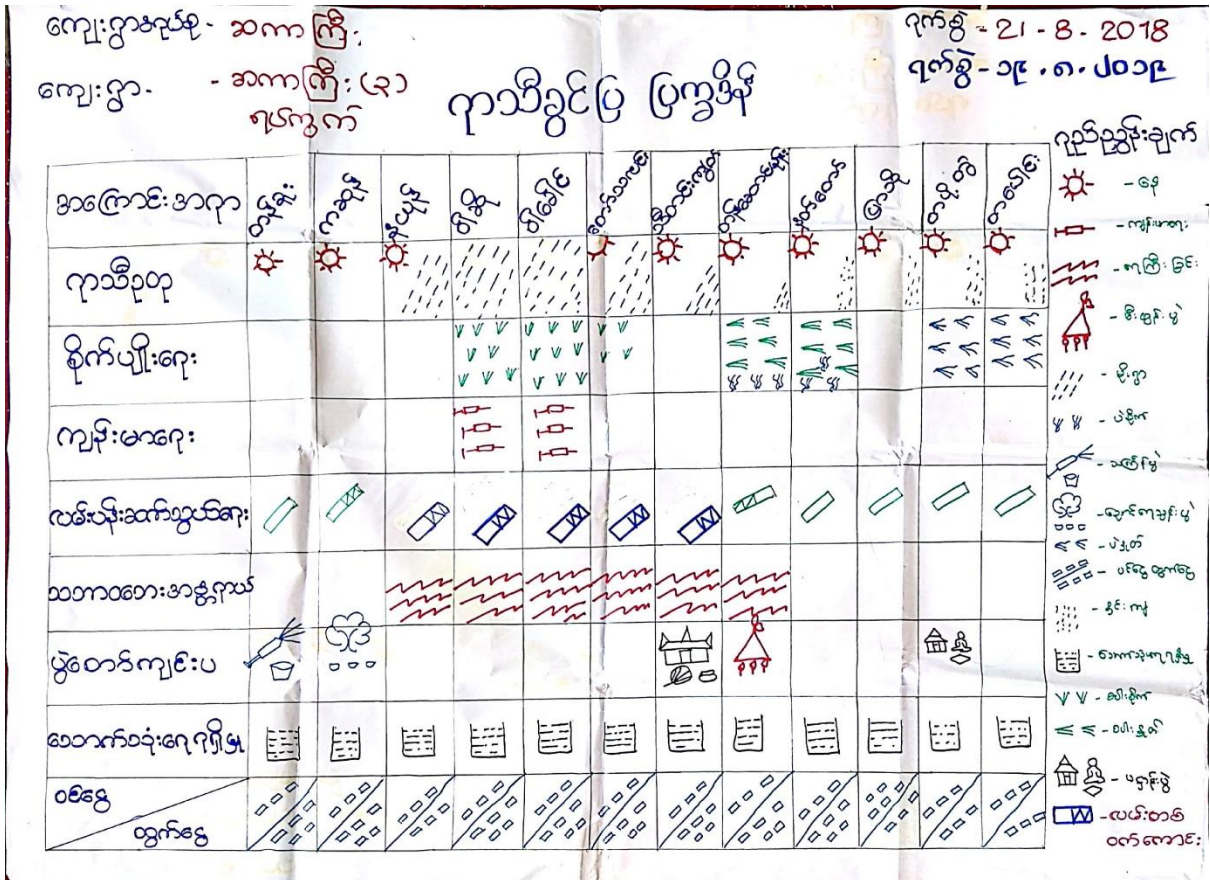 ကျေးရွာအုပ်စု - ဆကာကြီး
ကျေးရွာ - ဆကာကြီး (၃)
ရပ်ကွက်
ရာသီခွင်ပြ ပြက္ခဒိန်
ရက်စွဲ - 21 - 8 - 2018
ရက်စွဲ - ၁၉ . ၈ . ၂၀၁၉
အကြောင်းအရာ
တန်ခူး
ကဆုန်
နယုန်
ဝါဆို
ဝါခေါင်
တော်သလင်း
သီတင်းကျွတ်
တန်ဆောင်မုန်း
နတ်တော်
ပြာသို
တပို့တွဲ
တပေါင်း
ရာသီဥတု
စိုက်ပျိုးရေး
ကျန်းမာရေး
လမ်းပန်းဆက်သွယ်ရေး
သဘာဝဘေးအန္တရာယ်
ပွဲတော်ကျင်းပ
သောက်သုံးရေရရှိမှု
ဝင်ငွေ
ထွက်ငွေ
ရည်ညွှန်းချက်
- နေ
- ကျန်းမာရေး
- ရေကြီးခြင်း
- မီးထွန်းပွဲ
- မိုးရွာ
- ပဲစိုက်
- သင်္ကြန်ပွဲ
- ညောင်ရေသွန်းပွဲ
- ပဲနှုတ်
- ဝင်ငွေထွက်ငွေ
- နှင်းကျ
- သောက်သုံးရေရရှိမှု
- စပါးစိုက်
- စပါးရိတ်
- ပဌာန်းပွဲ
- လမ်းတစ်ဝက်ကောင်း